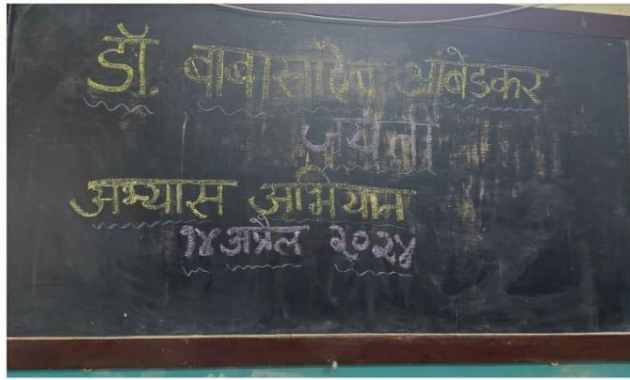 डॉ. बाबासाहेब आंबेडकर
जयंती
अभ्यास अभियान
१४ अप्रैल २०२४